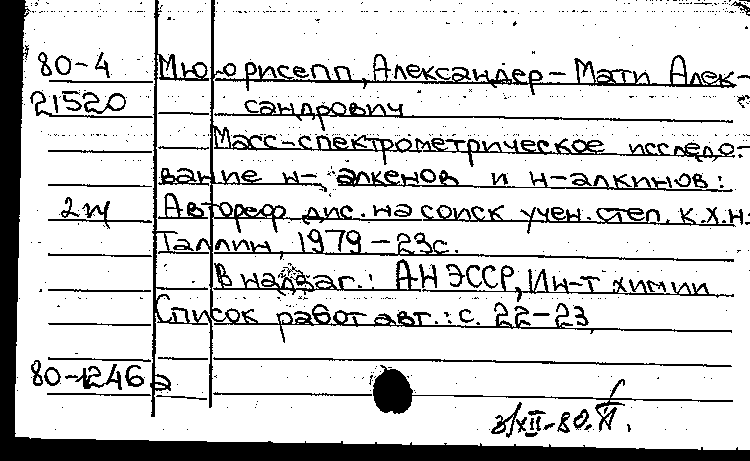 80-4 Мююрисепп, Александер-Мати Алек-
21520 сандрович
Масс-спектрометрическое исследо-
вание н-алкенов и н-алкинов:
2м Автореф. дис. на соиск. учен. степ. к.х.н.
Таллин, 1979 - 23с.
В надзаг.: АН ЭССР, Ин-т химии
Список работ авт.: с. 22-23
80-1246а
3/XII-80.